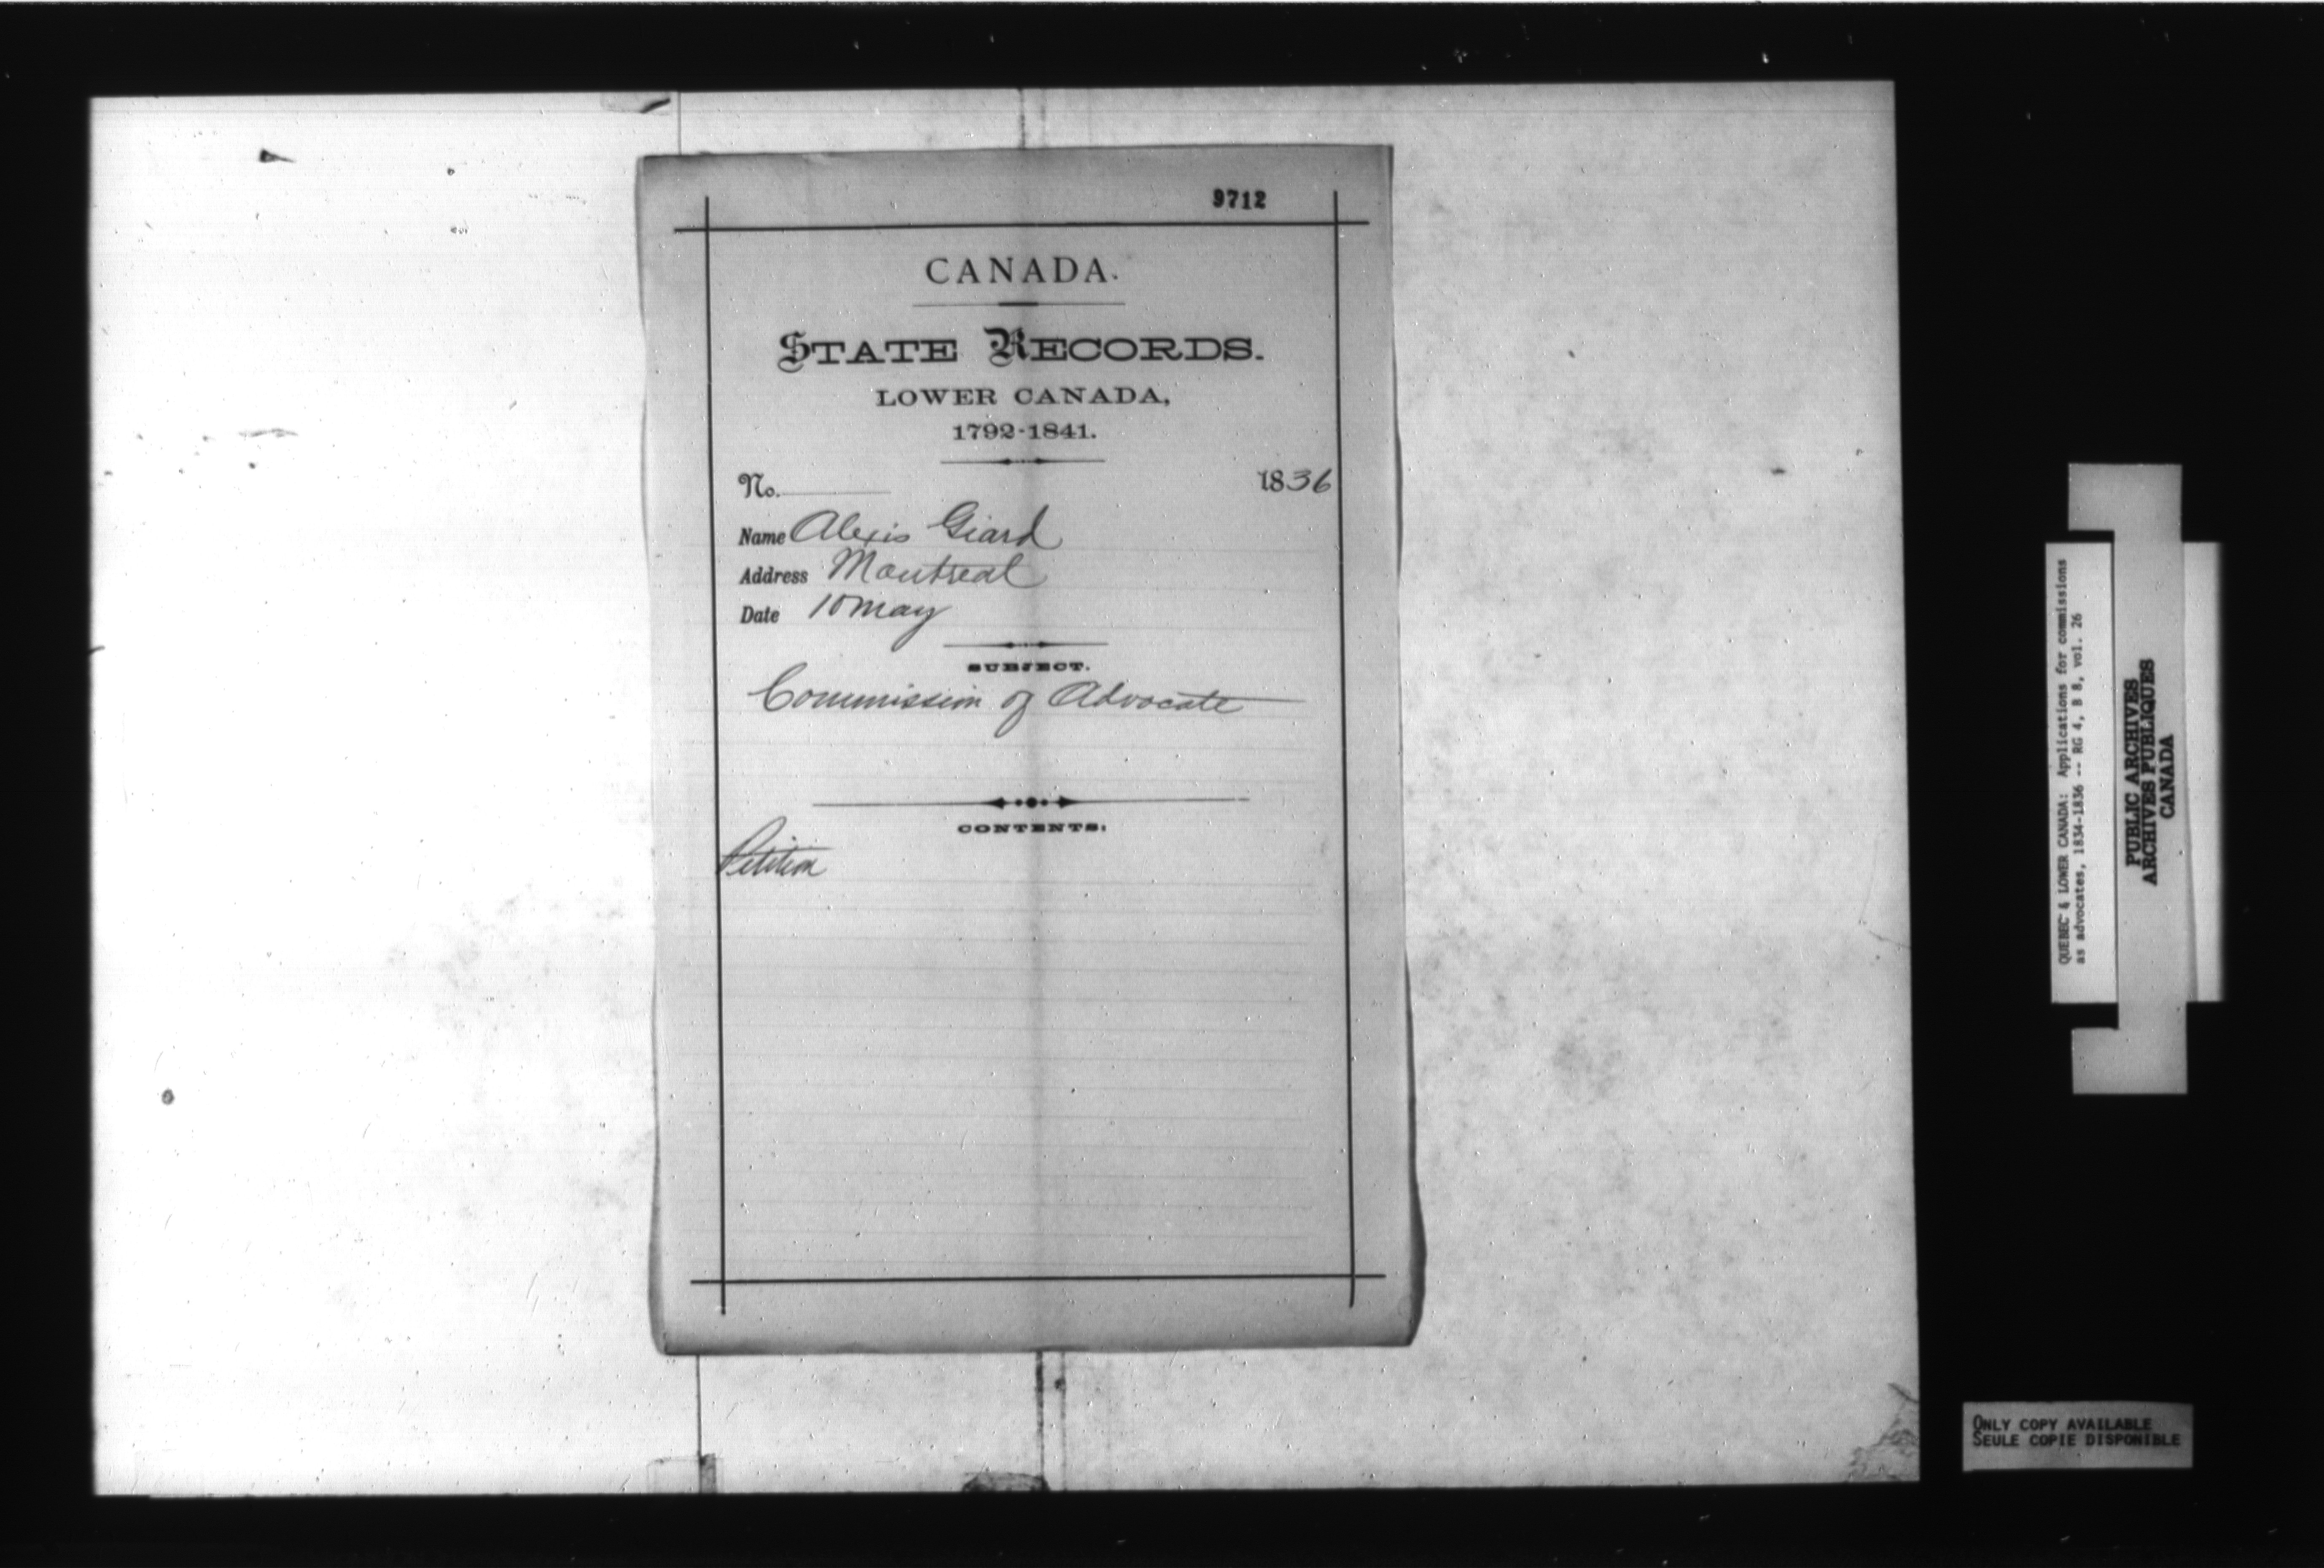 9712
CANADA.
STATE RECORDS.
LOWER CANADA,
1792-1841.
No. 1836
Name Alexis Giard
Address Montreal
Date 10 May
SUBJECT.
Commission of Advocate
CONTENTS:
Petition
QUEBEC & LOWER CANADA: Applications for commissions
as advocates, 1834-1836 -- RG 4, B 8, vol. 26
PUBLIC ARCHIVES
ARCHIVES PUBLIQUES
CANADA
ONLY COPY AVAILABLE
SEULE COPIE DISPONIBLE